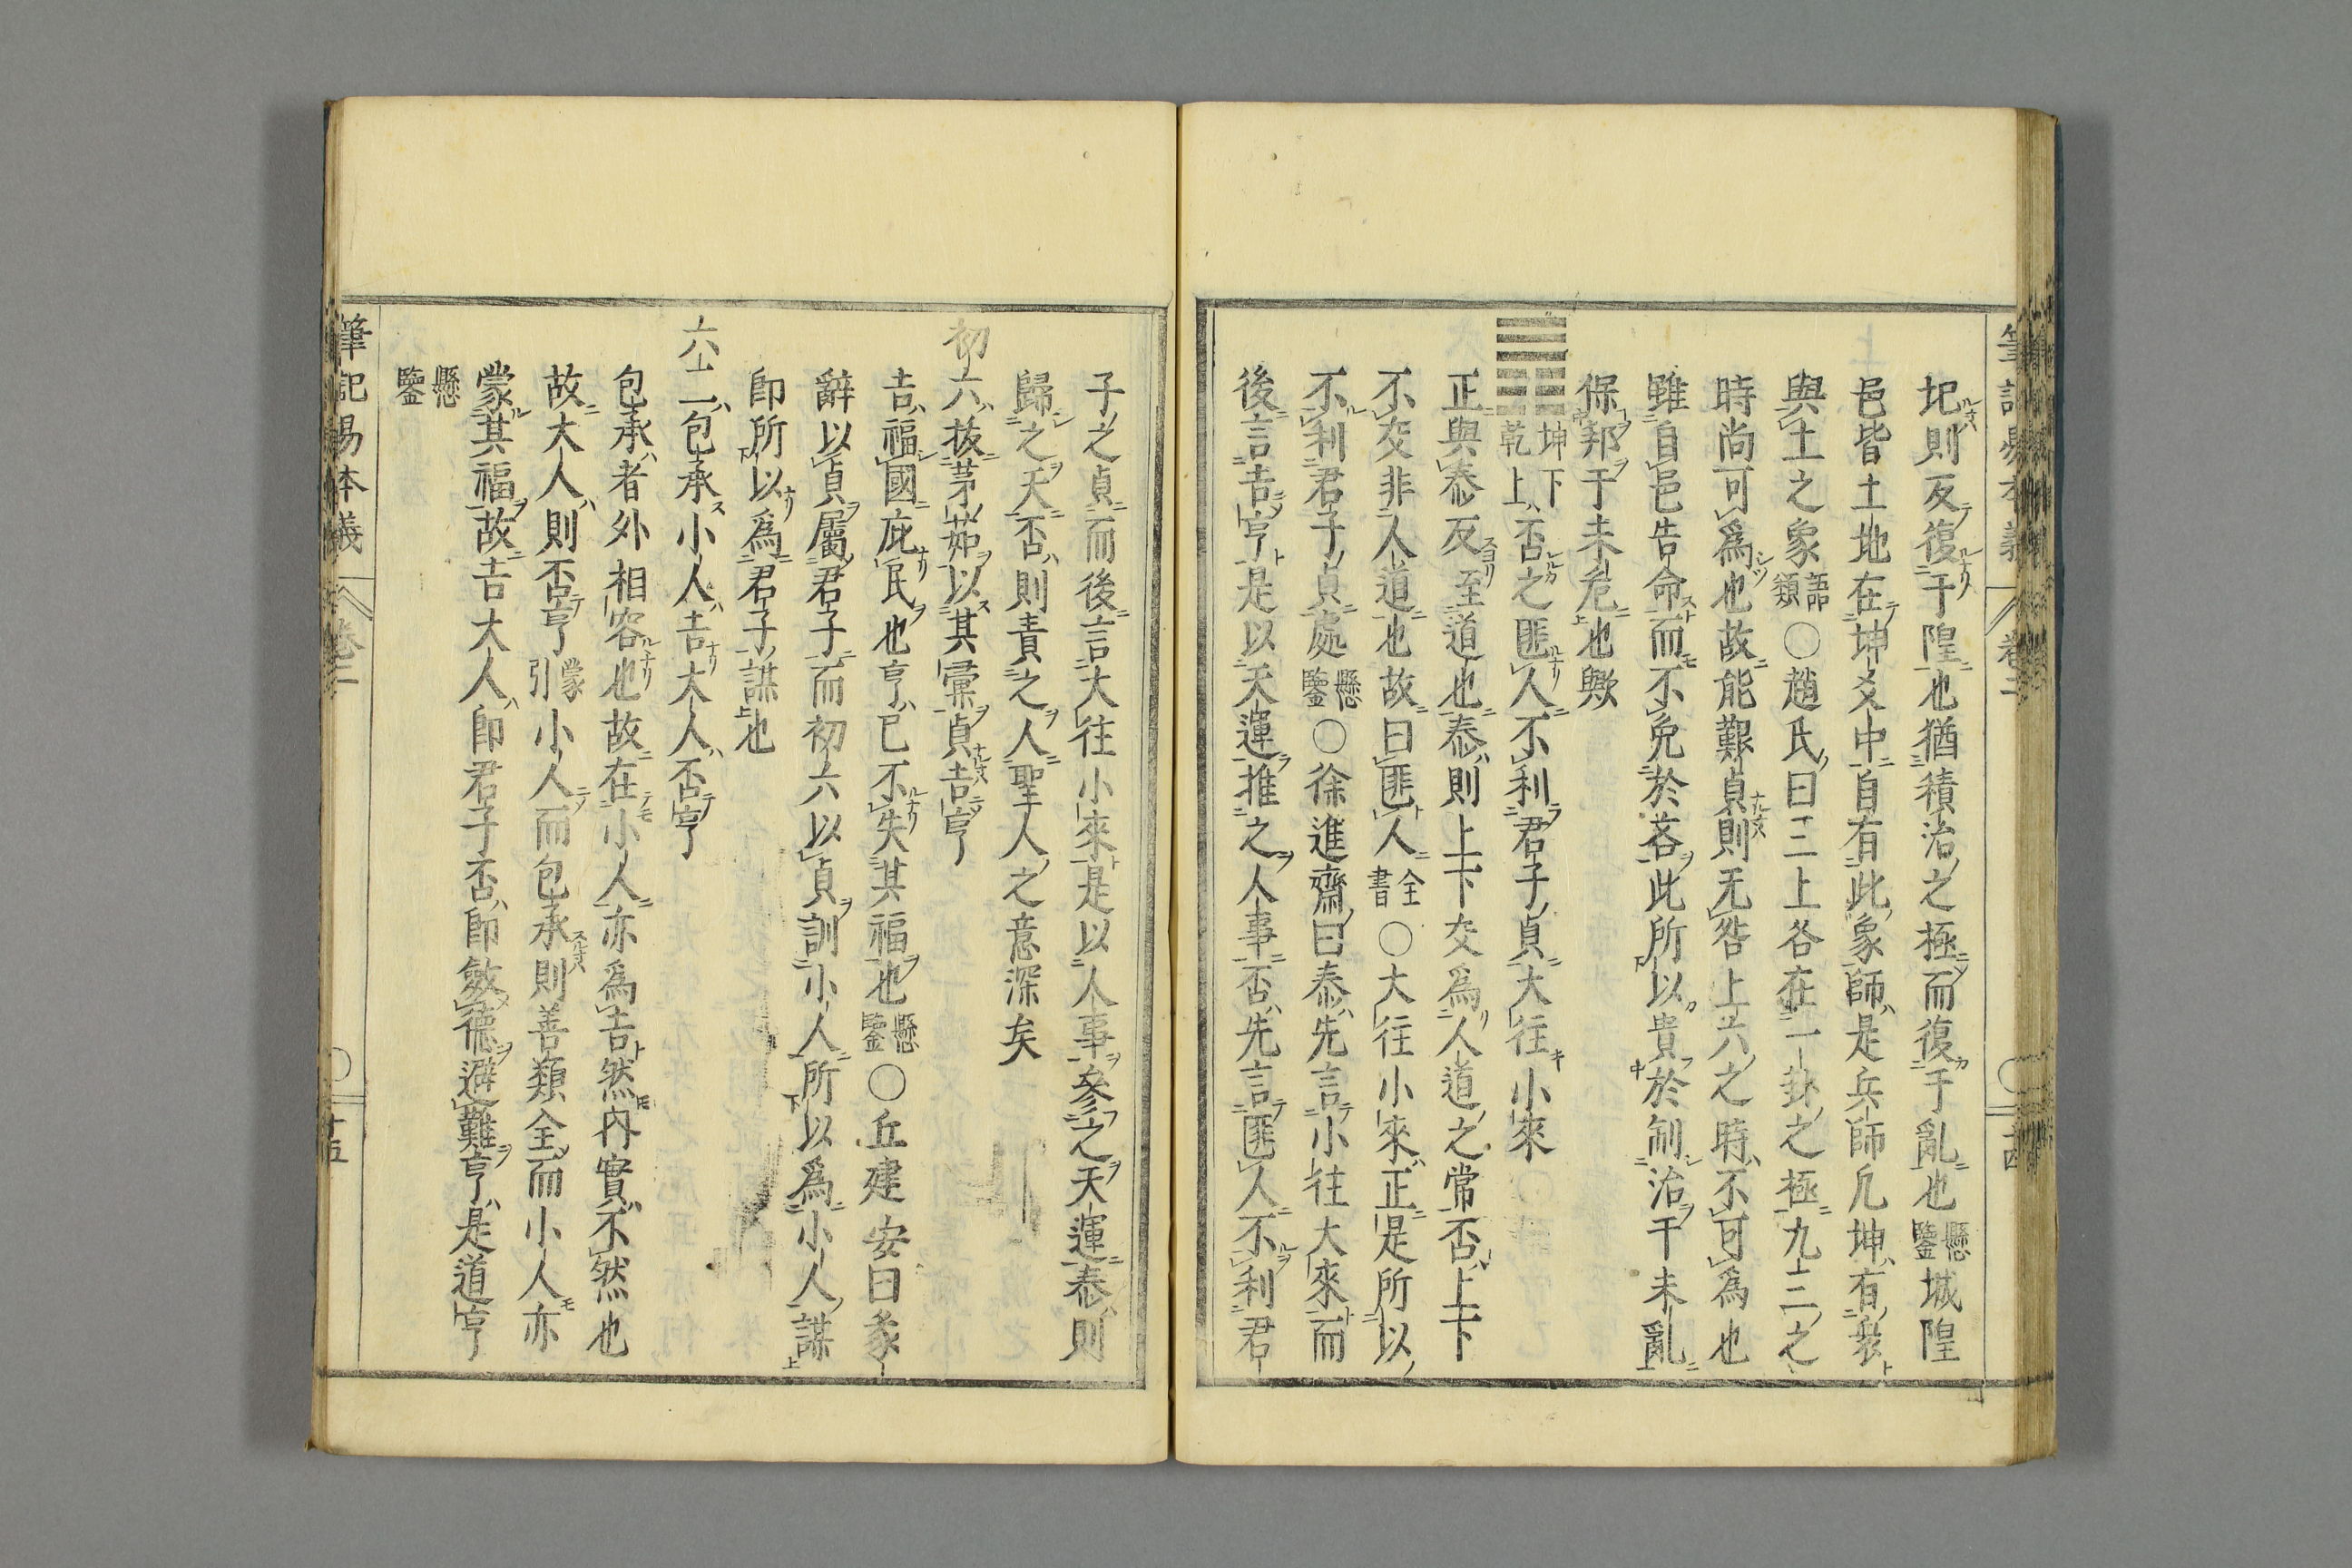 圯則反復于隍也猶積治之極而復于亂也懸鑒城隍
邑皆土地在坤爻中自有此象師是兵師凡坤有衆
與土之象語類〇趙氏曰三上各在一卦之極九三之
時尚可爲也故能艱貞則无咎上六之時不可爲也
雖自邑告命而不免於吝此所以貴於制治于未亂
保邦于未危也歟
坤下乾上否之匪人不利君子貞大往小來
正與泰反至道也泰則上下交爲人道之常否上下
不交非人道也故曰匪人全書〇大往小來正是所以
不利君子貞處懸鑒〇徐進齋曰泰先言小往大來而
後言吉亨是以天運推之人事否先言匪人不利君
筆記易本義 卷二 十四
子之貞而後言大往小來是以人事參之天運泰則
歸之天否則責之人聖人之意深矣
初六抜茅茹以其彙貞吉亨
吉福國庇民也亨已不失其福也懸鑒〇丘建安曰彖
辭以貞屬君子而初六以貞訓小人所以爲小人謀
即所以爲君子謀也
六二包承小人吉大人否亨
包承者外相容也故在小人亦爲吉然內實不然也
故大人則否亨蒙引小人而包承則善類全而小人亦
蒙其福故吉大人即君子否即斂德避難亨是道亨
懸鑒
筆記易本義 卷二 十五